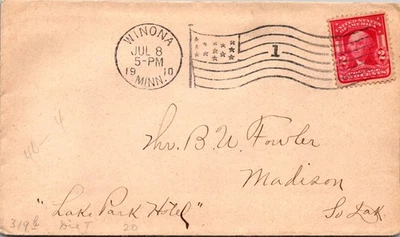 WINONA
JUL 8
5-PM
19 10
MINN.
1
UNITED STATES
OF AMERICA
2 2
Mr. B. W. Fowler
Madison
So Dak.
"Lake Park Hotel"
319b
Die I
20